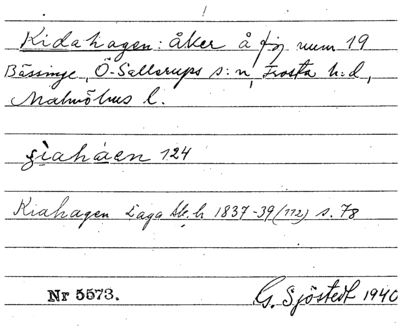 Kidahagen: åker å fsj num 19
Bässinge, Ö-Sallerups s:n, Frosta h:d,
Malmöhus l.
giaháen 124
Kiahagen Laga sk. h 1837-39 (112) s. 78
Nr 5573. G. Sjöstedt 1940